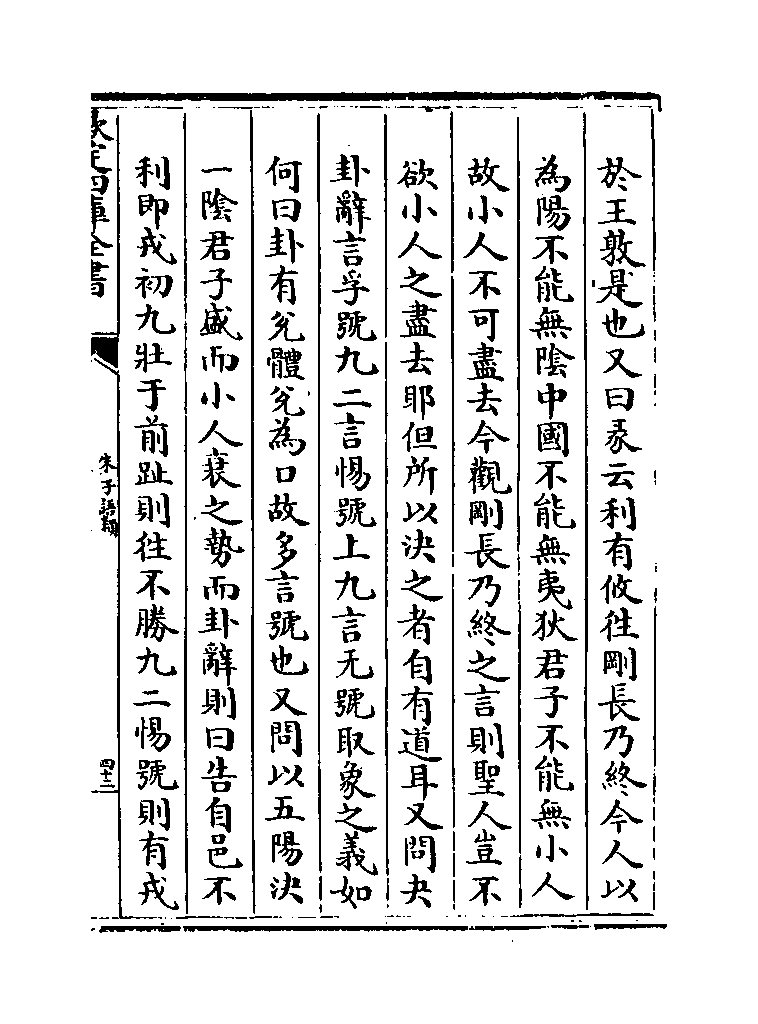 於王敦是也又曰彖云利有攸往剛長乃終今人以
為陽不能無陰中國不能無夷狄君子不能無小人
故小人不可盡去今觀剛長乃終之言則聖人豈不
欲小人之盡去耶但所以決之者自有道耳又問夬
卦辭言孚號九二言惕號上九言无號取象之義如
何曰卦有兌體兌為口故多言號也又問以五陽決
一陰君子盛而小人衰之勢而卦辭則曰告自邑不
利即戎初九壯于前趾則往不勝九二惕號則有戎
欽定四庫全書
朱子語類
四十二